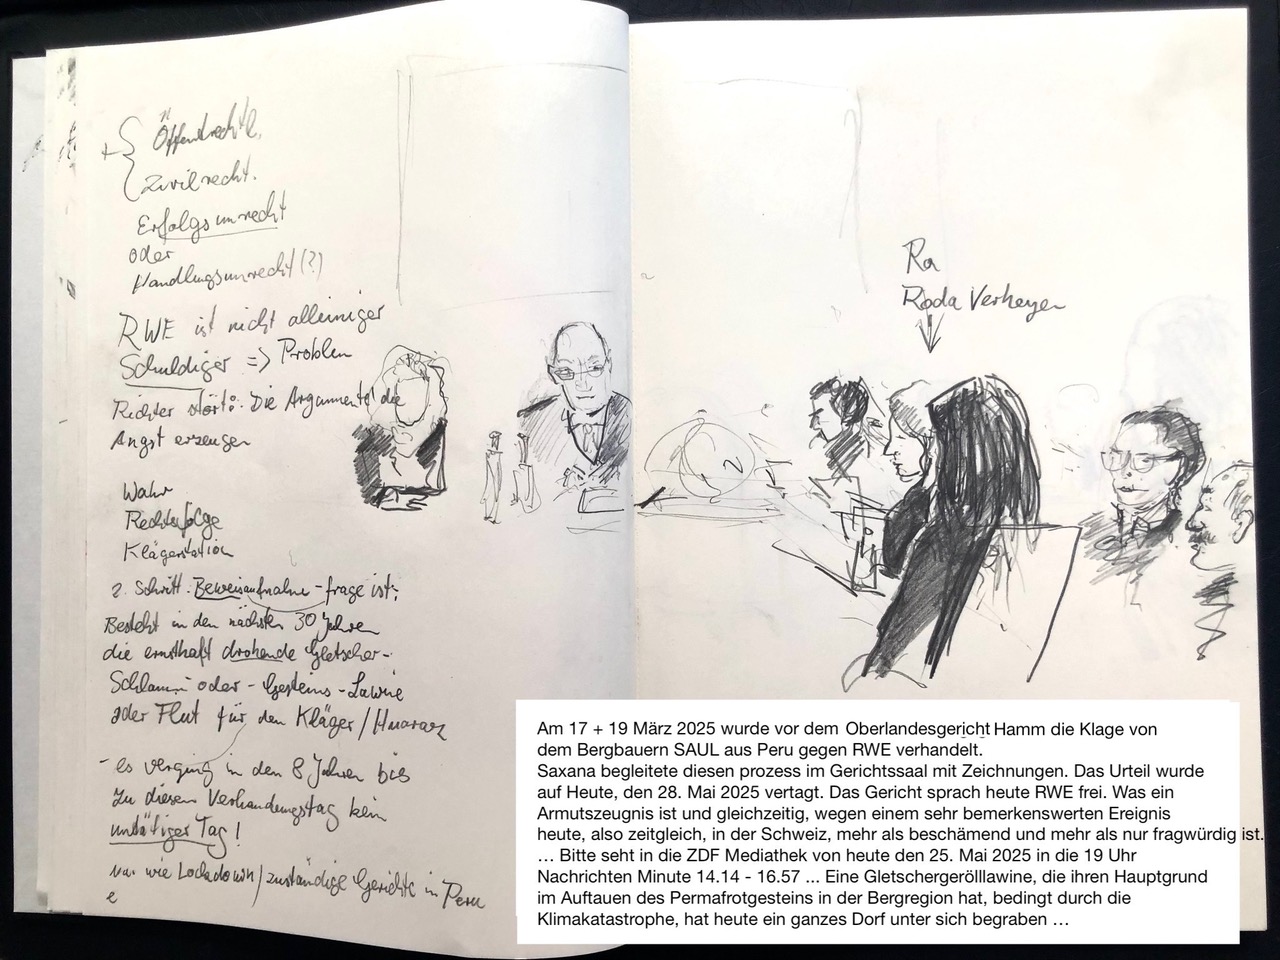 Öffentrechtl.
Zivilrecht.
Erfolgsunrecht
oder
Handlungsunrecht (?)
RWE ist nicht alleiniger
Schuldiger => Problem
Richter stört: Die Argumente die
Angst erzeugen
Wahr
Rechtsfolge
Klägerstation
2. Schritt: Beweisaufnahme-frage ist:
Besteht in den nächsten 30 Jahren
die ernsthaft drohende Gletscher-
Schlamm oder - Gesteins - Lawine
oder Flut für den Kläger / Huaraz
- es verging in den 8 Jahren bis
zu diesem Verhandlungstag kein
untätiger Tag!
wie Lockdown / zuständige Gerichte in Peru
Ra
Roda Verheyen
Am 17 + 19 März 2025 wurde vor dem Oberlandesgericht Hamm die Klage von
dem Bergbauern SAUL aus Peru gegen RWE verhandelt.
Saxana begleitete diesen prozess im Gerichtssaal mit Zeichnungen. Das Urteil wurde
auf Heute, den 28. Mai 2025 vertagt. Das Gericht sprach heute RWE frei. Was ein
Armutszeugnis ist und gleichzeitig, wegen einem sehr bemerkenswerten Ereignis
heute, also zeitgleich, in der Schweiz, mehr als beschämend und mehr als nur fragwürdig ist.
… Bitte seht in die ZDF Mediathek von heute den 25. Mai 2025 in die 19 Uhr
Nachrichten Minute 14.14 - 16.57 ... Eine Gletschergerölllawine, die ihren Hauptgrund
im Auftauen des Permafrotgesteins in der Bergregion hat, bedingt durch die
Klimakatastrophe, hat heute ein ganzes Dorf unter sich begraben …